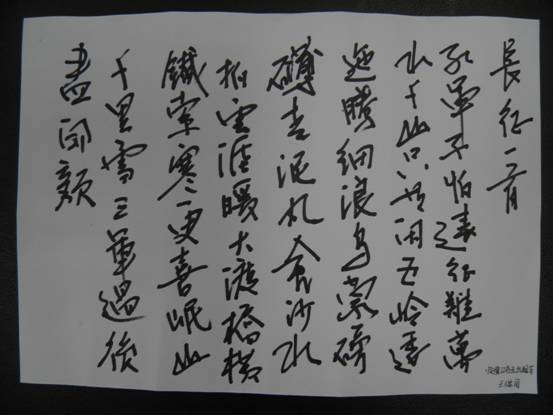 長征一首
紅軍不怕遠征難萬
水千山只等闲五岭逶
迤騰細浪烏蒙磅
礴走泥丸金沙水
拍雲涯暖大渡橋橫
鐵索寒更喜岷山
千里雪三軍過後
盡開顏